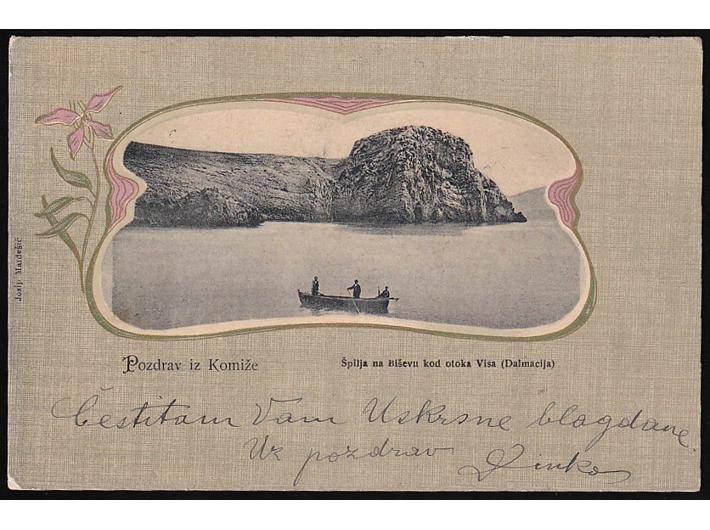 Josip Mardešić
Pozdrav iz Komiže
Špilja na Biševu kod otoka Visa (Dalmacija)
Čestitam Vam Uskrsne blagdane.
Uz pozdrav Dinko